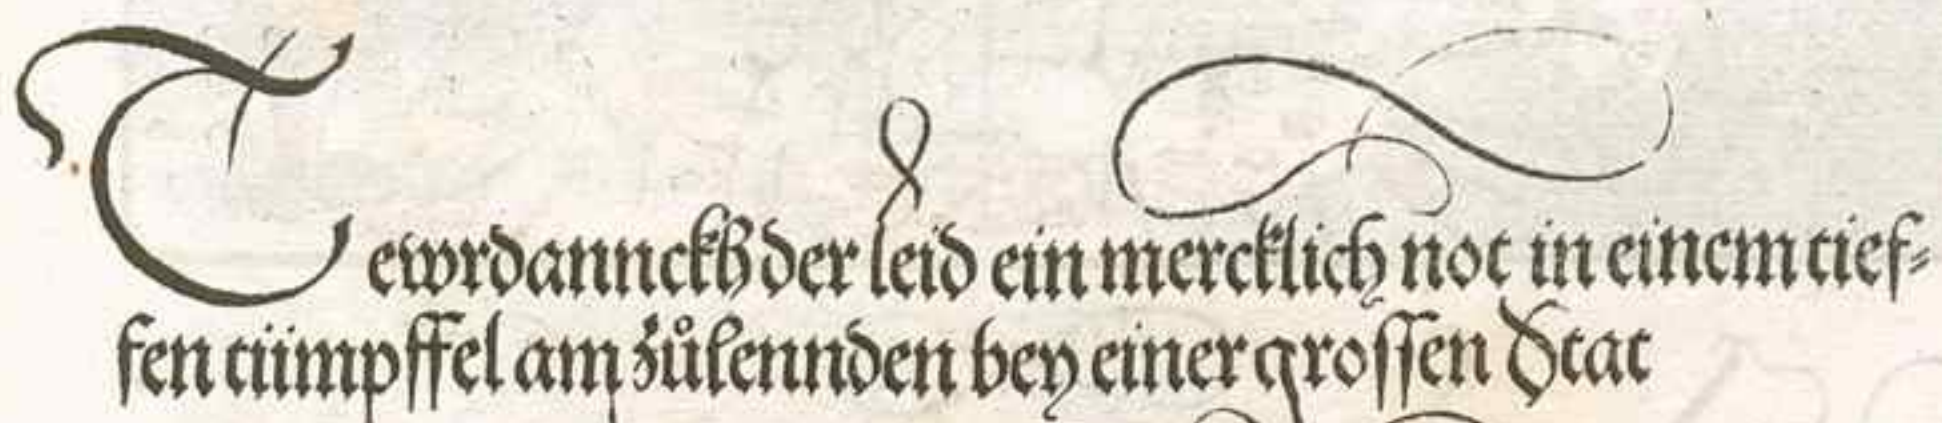 Tewrdannckh der leid ein mercklich not in einem tief⸗
fen tümpffel am zůlennden bey einer grossen Stat